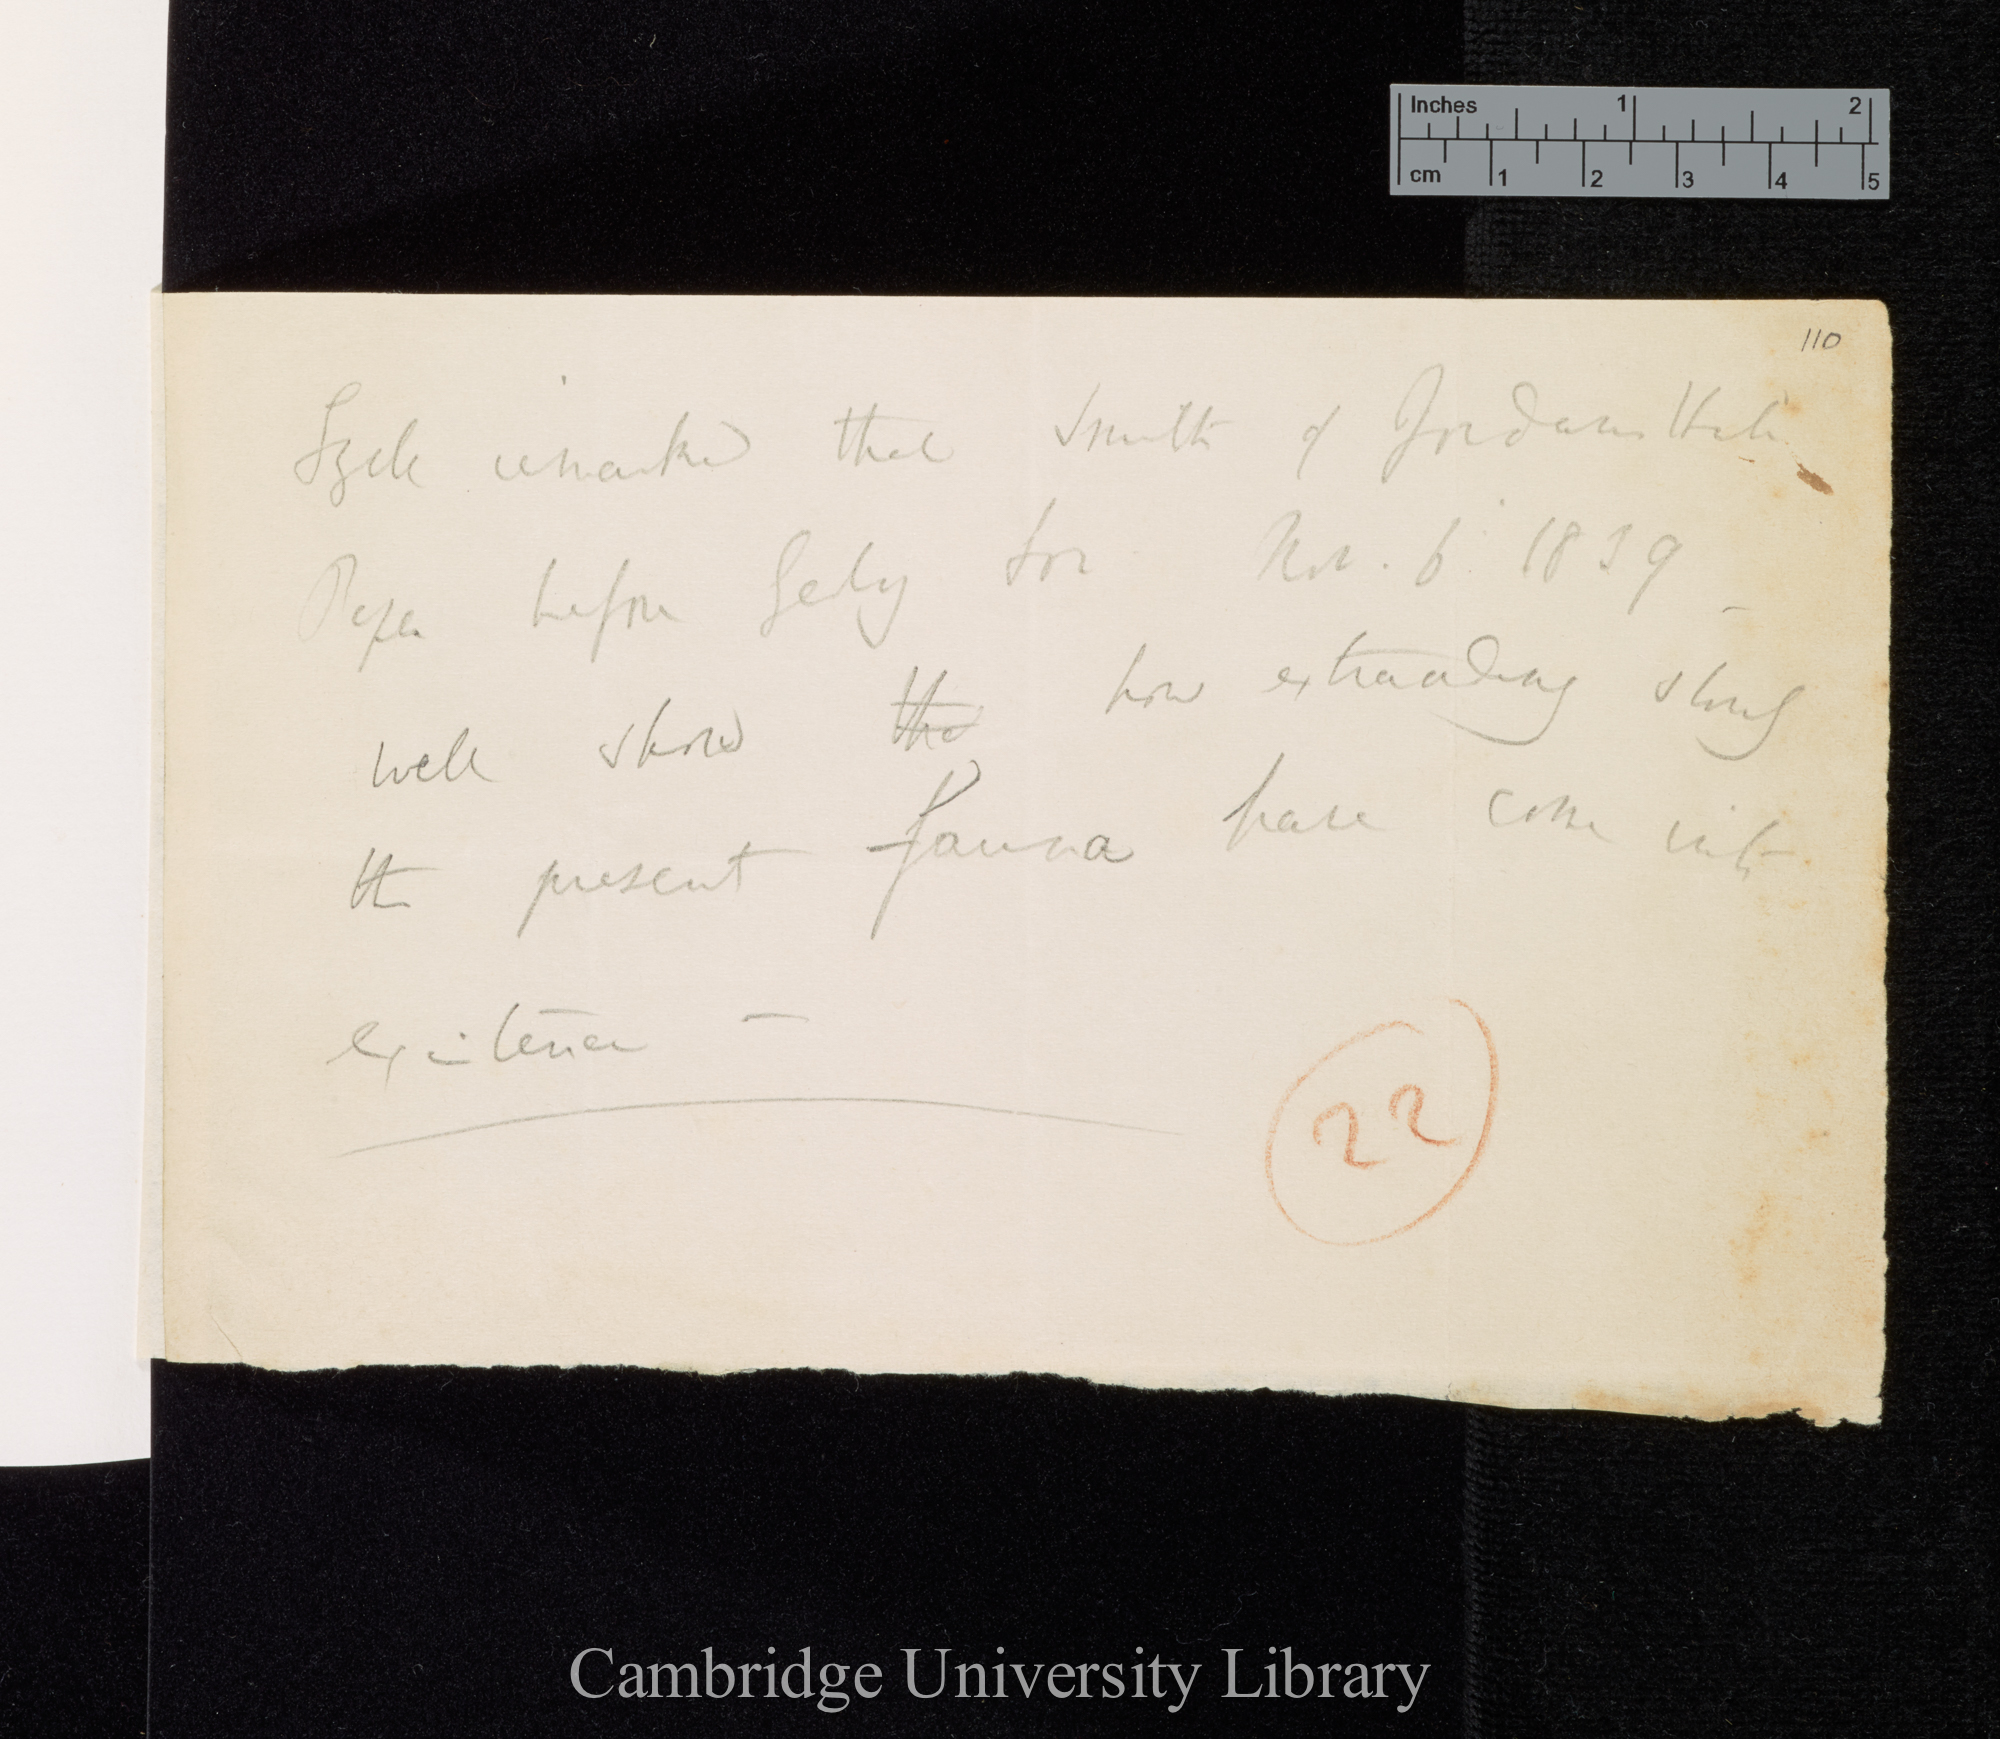 110
Lyell remarked that Smith of Jordan Hill
Paper before Geolog Soc Nov. 6. 1839 —
well show the how extraordinary slowly
the present Fauna have come into
existence —
22
Inches 1 2
cm 1 2 3 4 5
Cambridge University Library